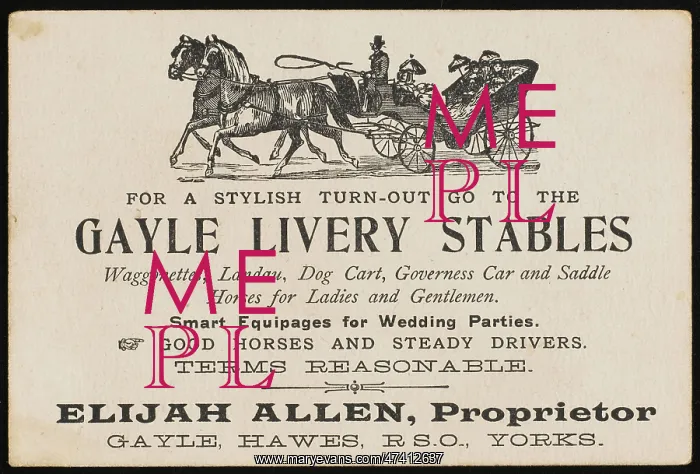 FOR A STYLISH TURN-OUT GO TO THE
GAYLE LIVERY STABLES
Waggonettes, Landau, Dog Cart, Governess Car and Saddle
Horses for Ladies and Gentlemen.
Smart Equipages for Wedding Parties.
GOOD HORSES AND STEADY DRIVERS.
TERMS REASONABLE.
ELIJAH ALLEN, Proprietor
GAYLE, HAWES, R.S.O., YORKS.
ME
PL
ME
PL
www.maryevans.com/47412697